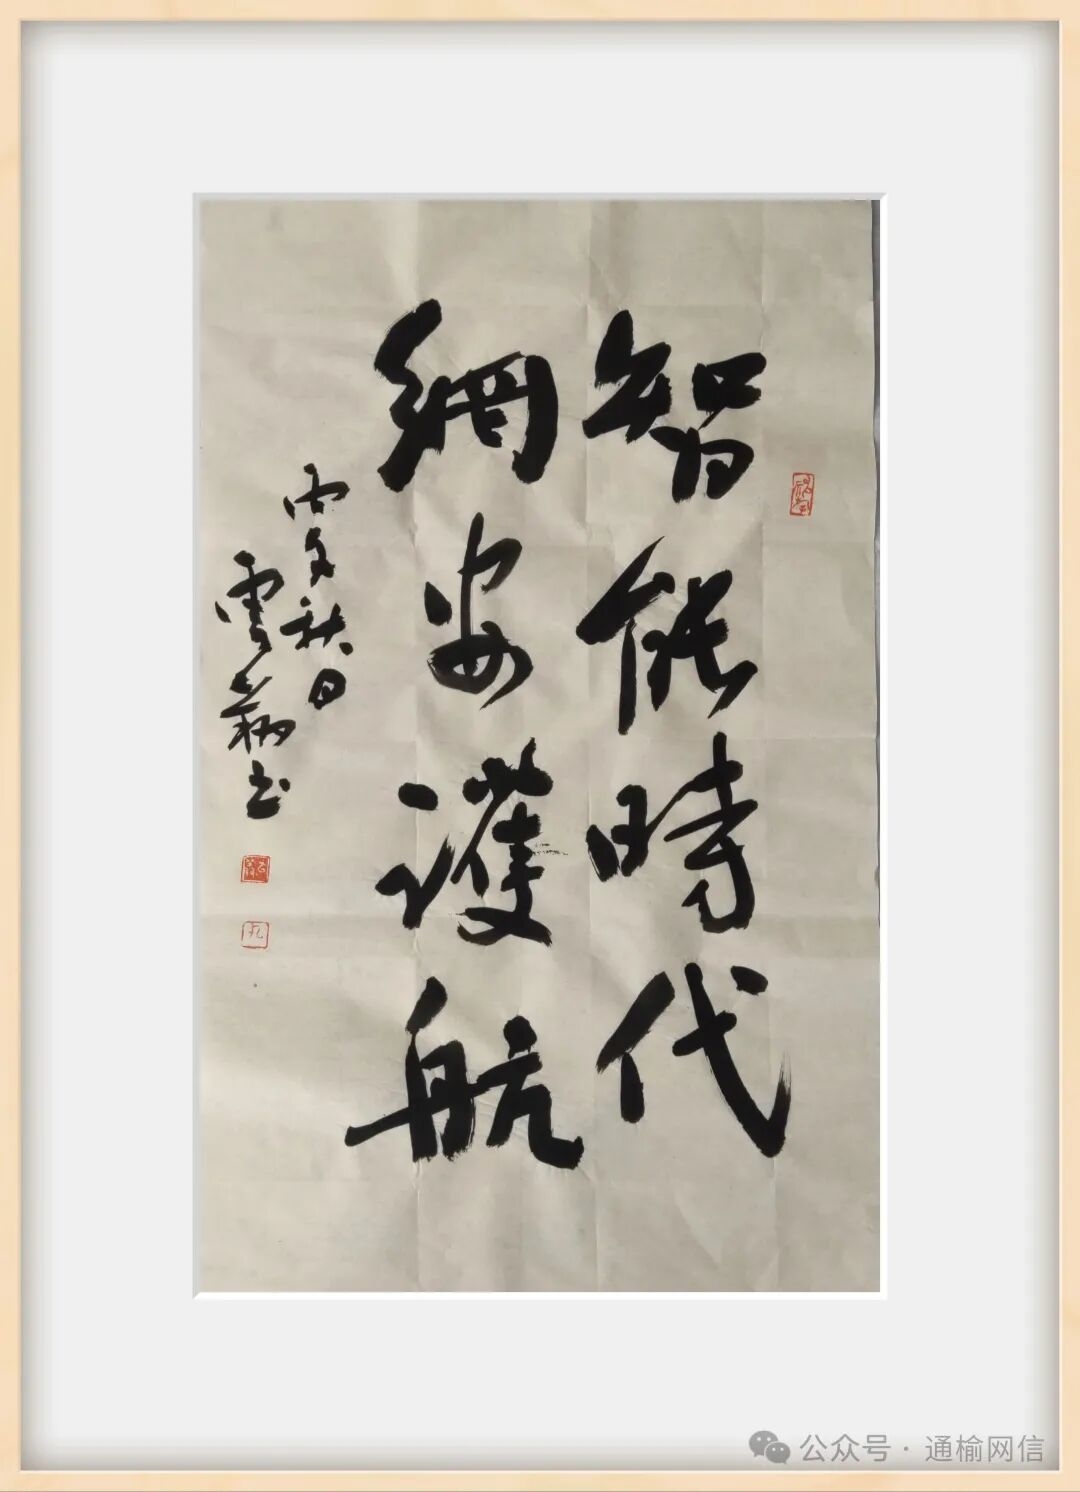 智能時代
網安護航
丙午秋日
雲
書
公众号·通榆网信